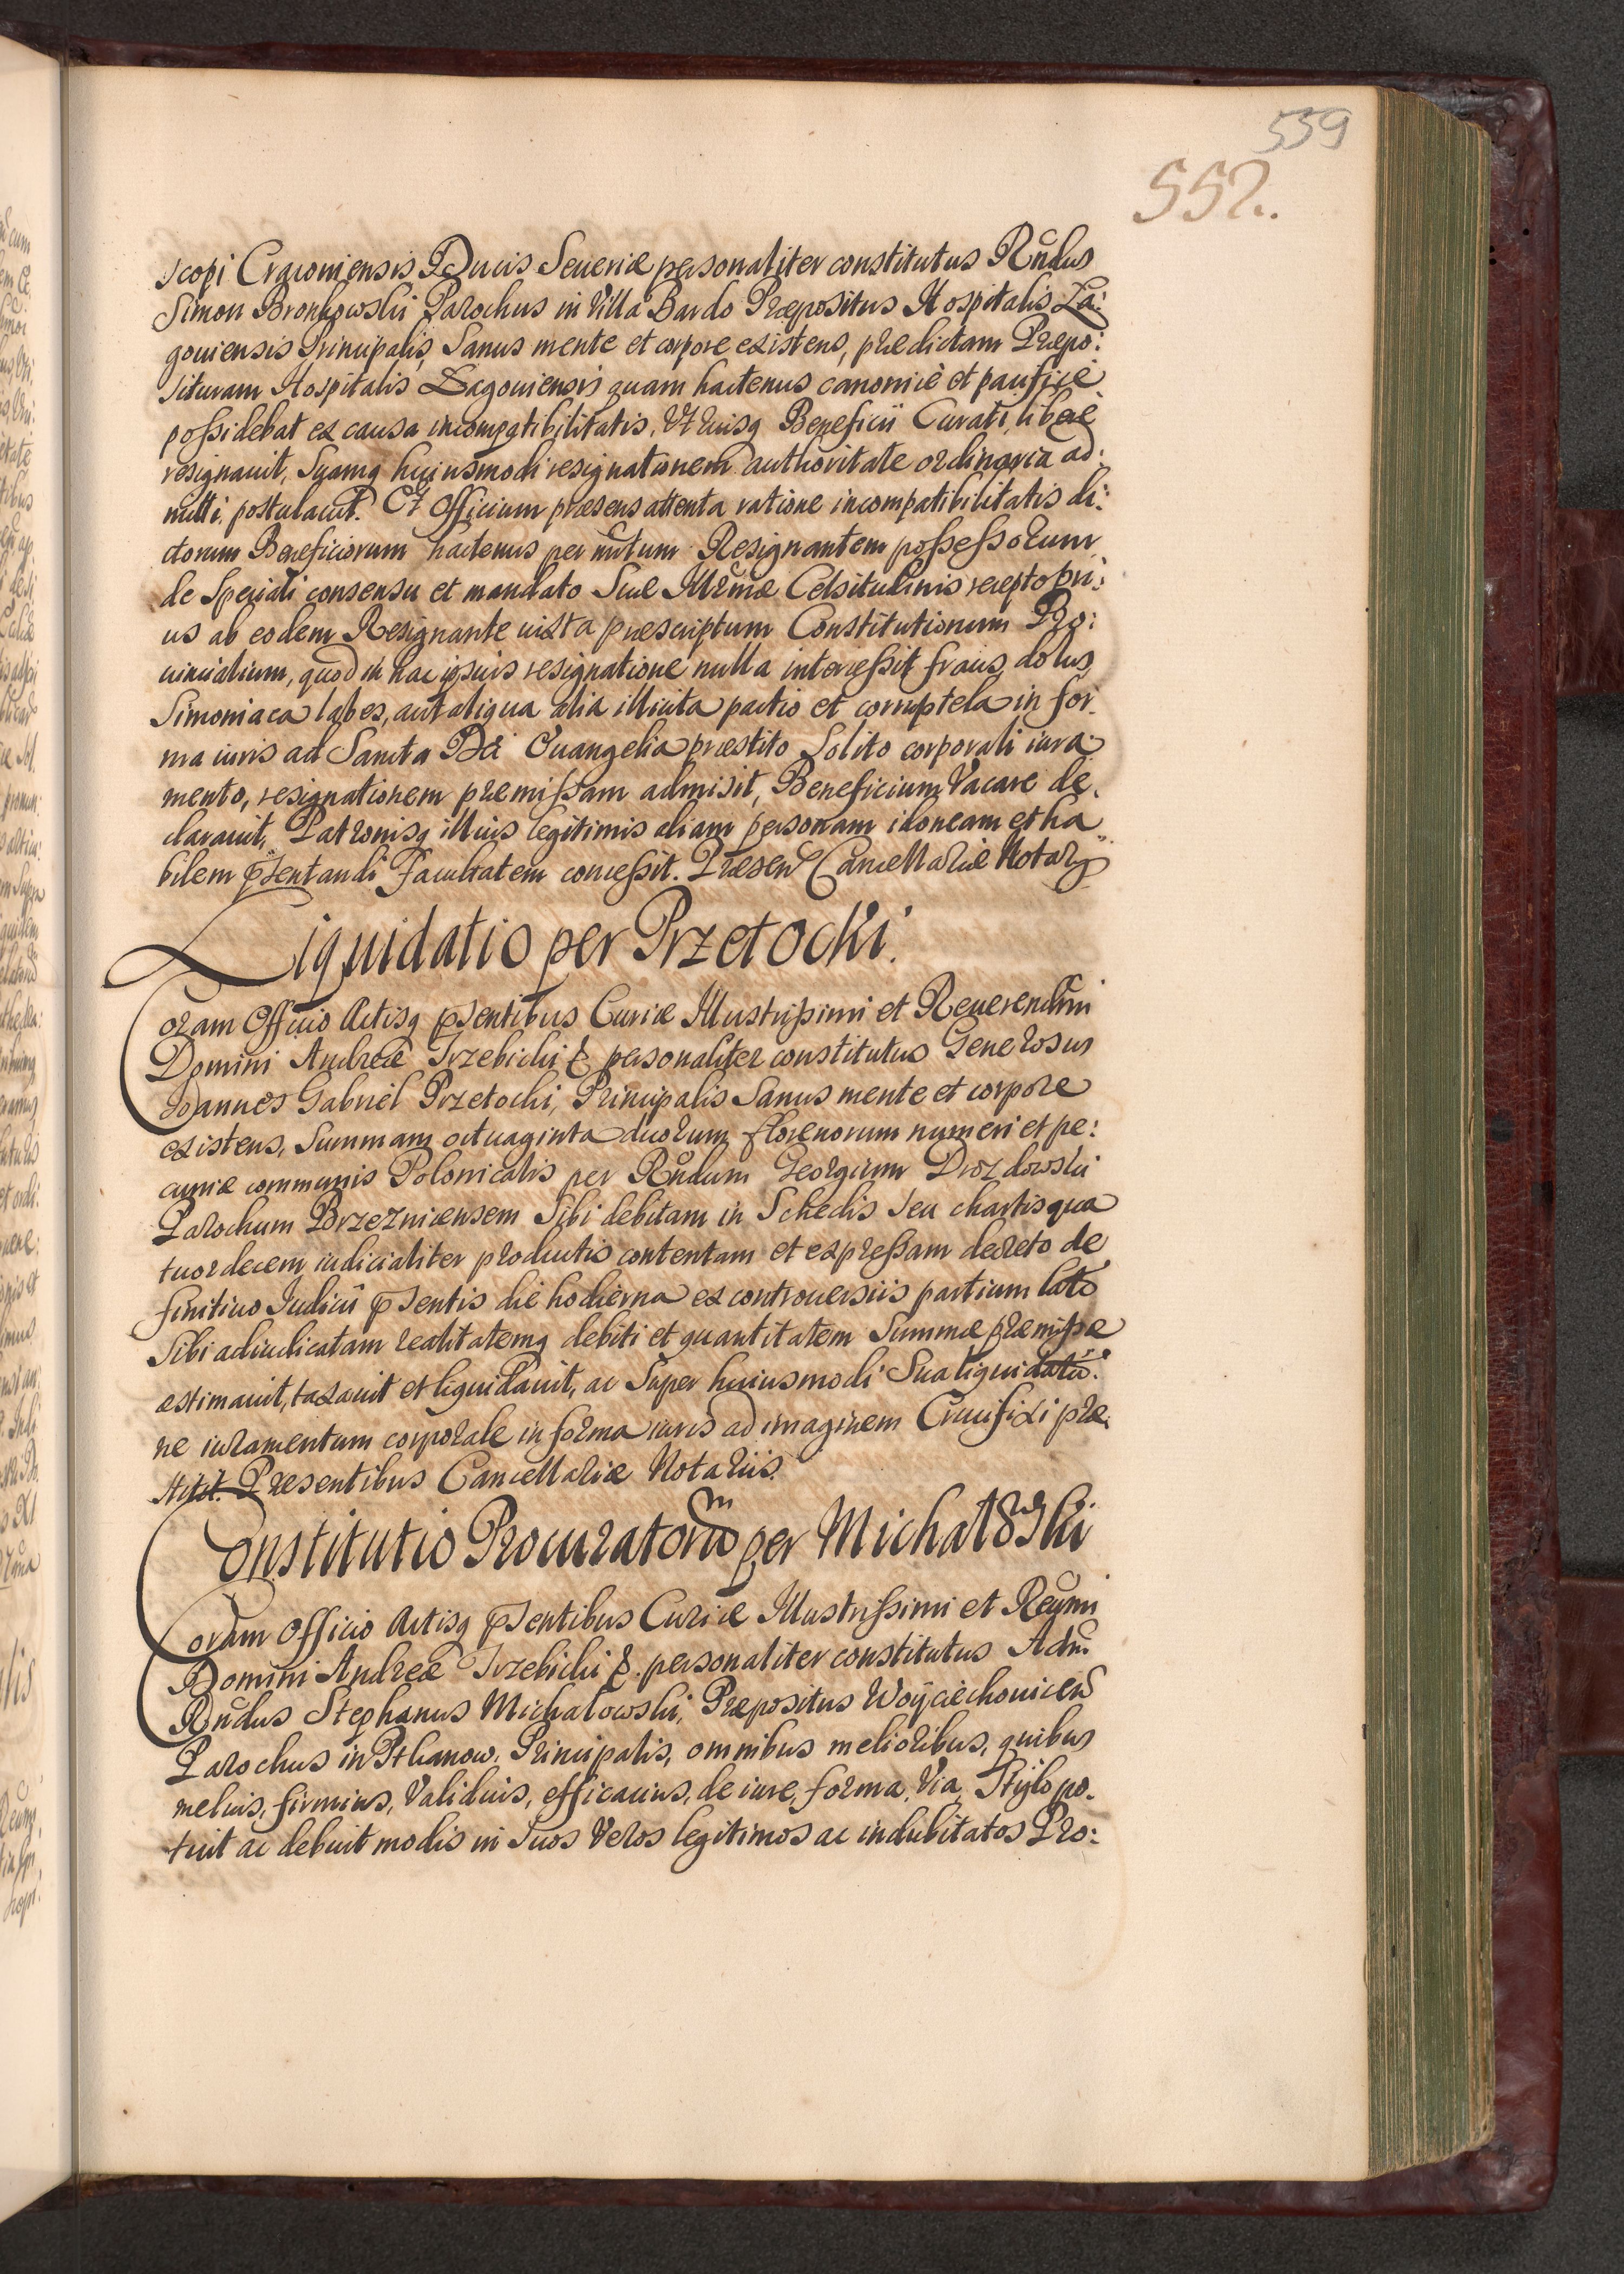 559
552.
scopi Cracoviensis Ducis Severiæ personaliter constitutus Rñdus
Simon Bronkowski Parochus in Villa Bardo Præpositus Hospitalis Ła:
goviensis Principalis, Sanus mente et corpore existens, prædictam Præpo:
situram Hospitalis Łagoviensis quam hactenus canonicè et pacificè
possidebat ex causa incompatibilitatis, Utriusq Beneficii Curati, liberè
resignavit, Suamq huiusmodi resignationem authoritate ordinaria ad:
mitti, postulavit. Et Officium præsens attenta ratione incompatibilitatis di:
ctorum Beneficiorum hactenus per Resignantem possessorum
de Speciali consensu et mandato Suæ Illrmæ Celsitudinis recepto pri:
us ab eodem Resignante iuxta præscriptum Constitutionum Pro:
vincialium, quod in hac ipsius resignatione nulla intercessit fraus, dolus
Simoniaca labes, aut aliqua alia illicita pactio et corruptela in for
ma iuris ad Sancta Dei Evangelia præstito Solito corporali iura
mento, resignationem præmissam admisit, Beneficium Vacare de,
claravit, Patronisq illius legitimis aliam personam idoneam et ha
bilem pntandi Facultatem concessit. Præsen Cancellariæ Notarÿ
Liquidatio per Przetocki.
Coram Officio Actisq psentibus Curiæ Illustrissimi et Reverendmi
Domini Andreæ Trzebicki & personaliter constitutus Generosus
Joannes Gabriel Przetocki, Principalis Sanus mente et corpore
existens, Summam octuaginta duorum florenorum numeri et pe:
cuniæ communis Polonicalis per Rndum Georgium Drozdowski
Parochum Brzeznicensem Sibi debitam in Schedis seu chartis qua
tuordecem iudicialiter productis contentam et expressam decreto de
finitivo Iudicii psentis die hodierna ex controversiis partium lato
Sibi adiudicatam realitatemq debiti et quantitatem Summæ præmissæ
æstimavit, taxavit et liquidavit, ac Super huiusmodi Sua liquidatio:
ne iuramentum corporale in forma iuris ad imaginem Crucifixi præ
stitit. Præsentibus Cancellariæ Notariis.
Constitutio Procuratorum per Michałowski
Coram Officio Actisq psentibus Curiæ Illustrissimi et Reymi
Domini Andreæ Trzebicki &. personaliter constitutus Adm
Rndus Stephanus Michałowski, Præpositus Woyciechovicen
Parochus in Pthanow. Principalis, omnibus melioribus, quibus
melius, firmius, Validius, efficacius, de iure, forma, Via, Stylo po.
tuit ac debuit modis in Suos Veros legitimos ac indubitatos Pro: